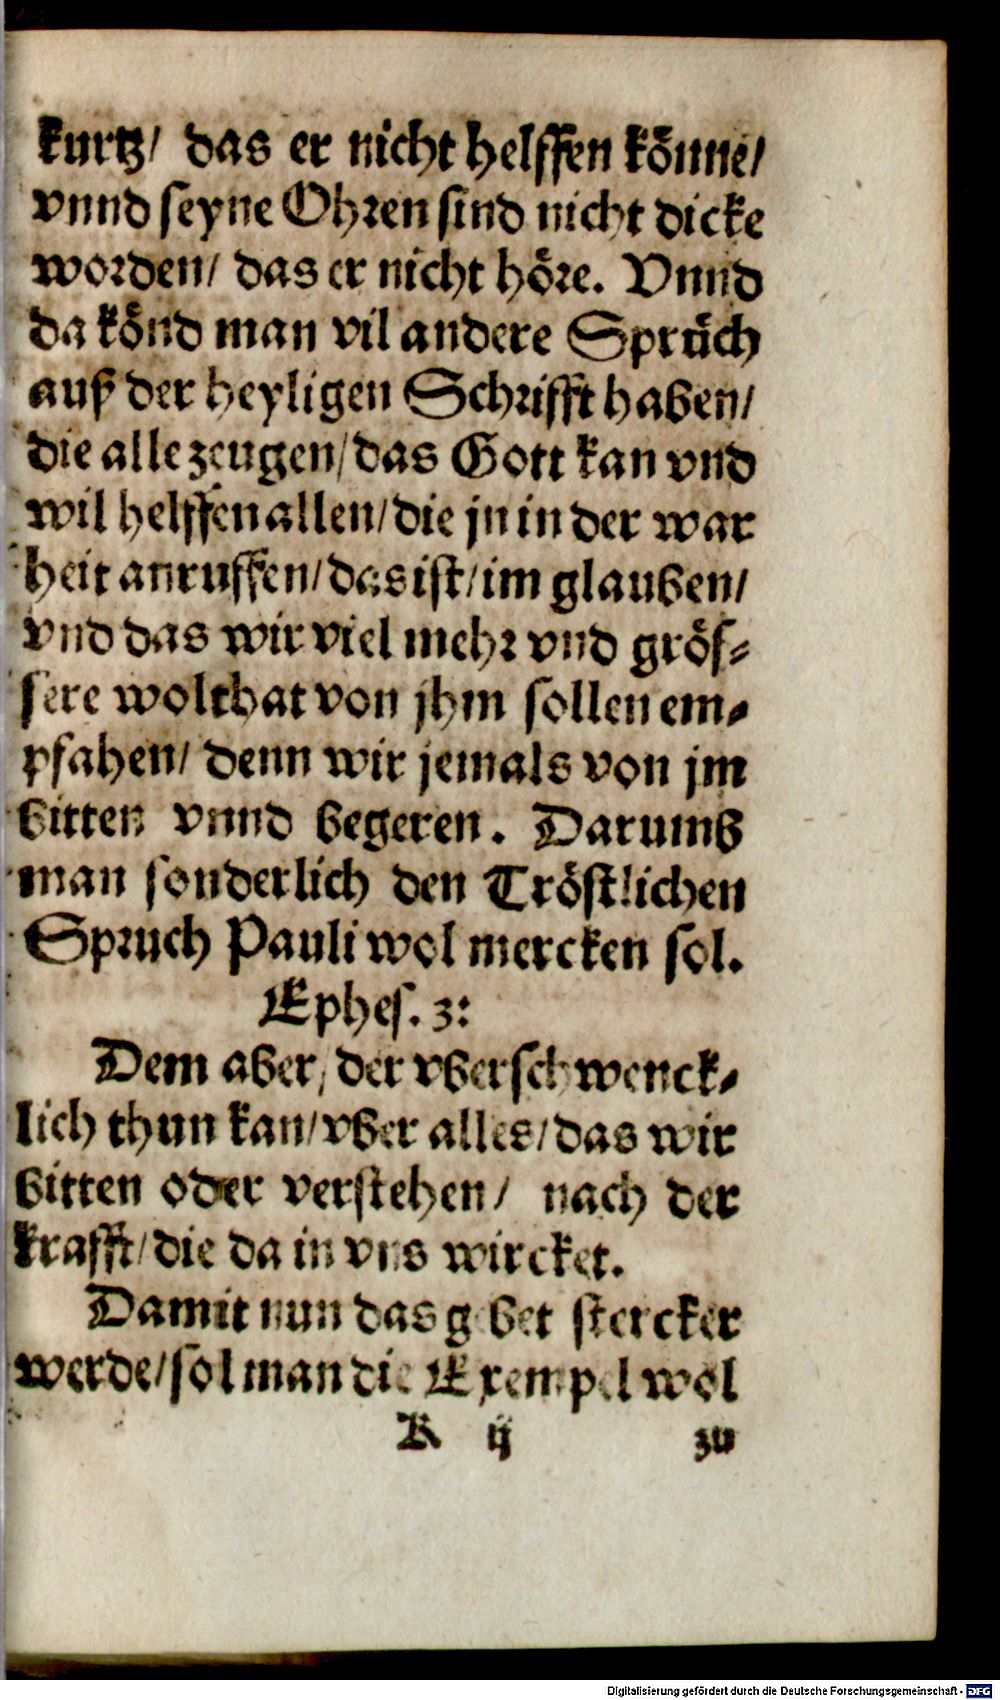 kurtz/ das er nicht helffen könne/
vnnd seyne Ohren sind nicht dicke
worden/ das er nicht höre. Vnnd
da könd man vil andere Sprüch
auß der heyligen Schrifft haben/
die alle zeugen/ das Gott kan vnd
wil helffen allen/ die jn in der war
heit anruffen/ das ist/ im glauben/
vnd das wir viel mehr vnd grös-
sere wolthat von jhm sollen em-
pfahen/ denn wir jemals von jm
bitten vnnd begeren. Darumb
man sonderlich den Tröstlichen
Spruch Pauli wol mercken sol.
Ephes. 3:
Dem aber/ der vberschwenck-
lich thun kan/ vber alles/ das wir
bitten oder verstehen/ nach der
krafft/ die da in vns wircket.
Damit nun das gebet stercker
werde/ sol man die Exempel wol
K ij zu
Digitalisierung gefördert durch die Deutsche Forschungsgemeinschaft - DFG